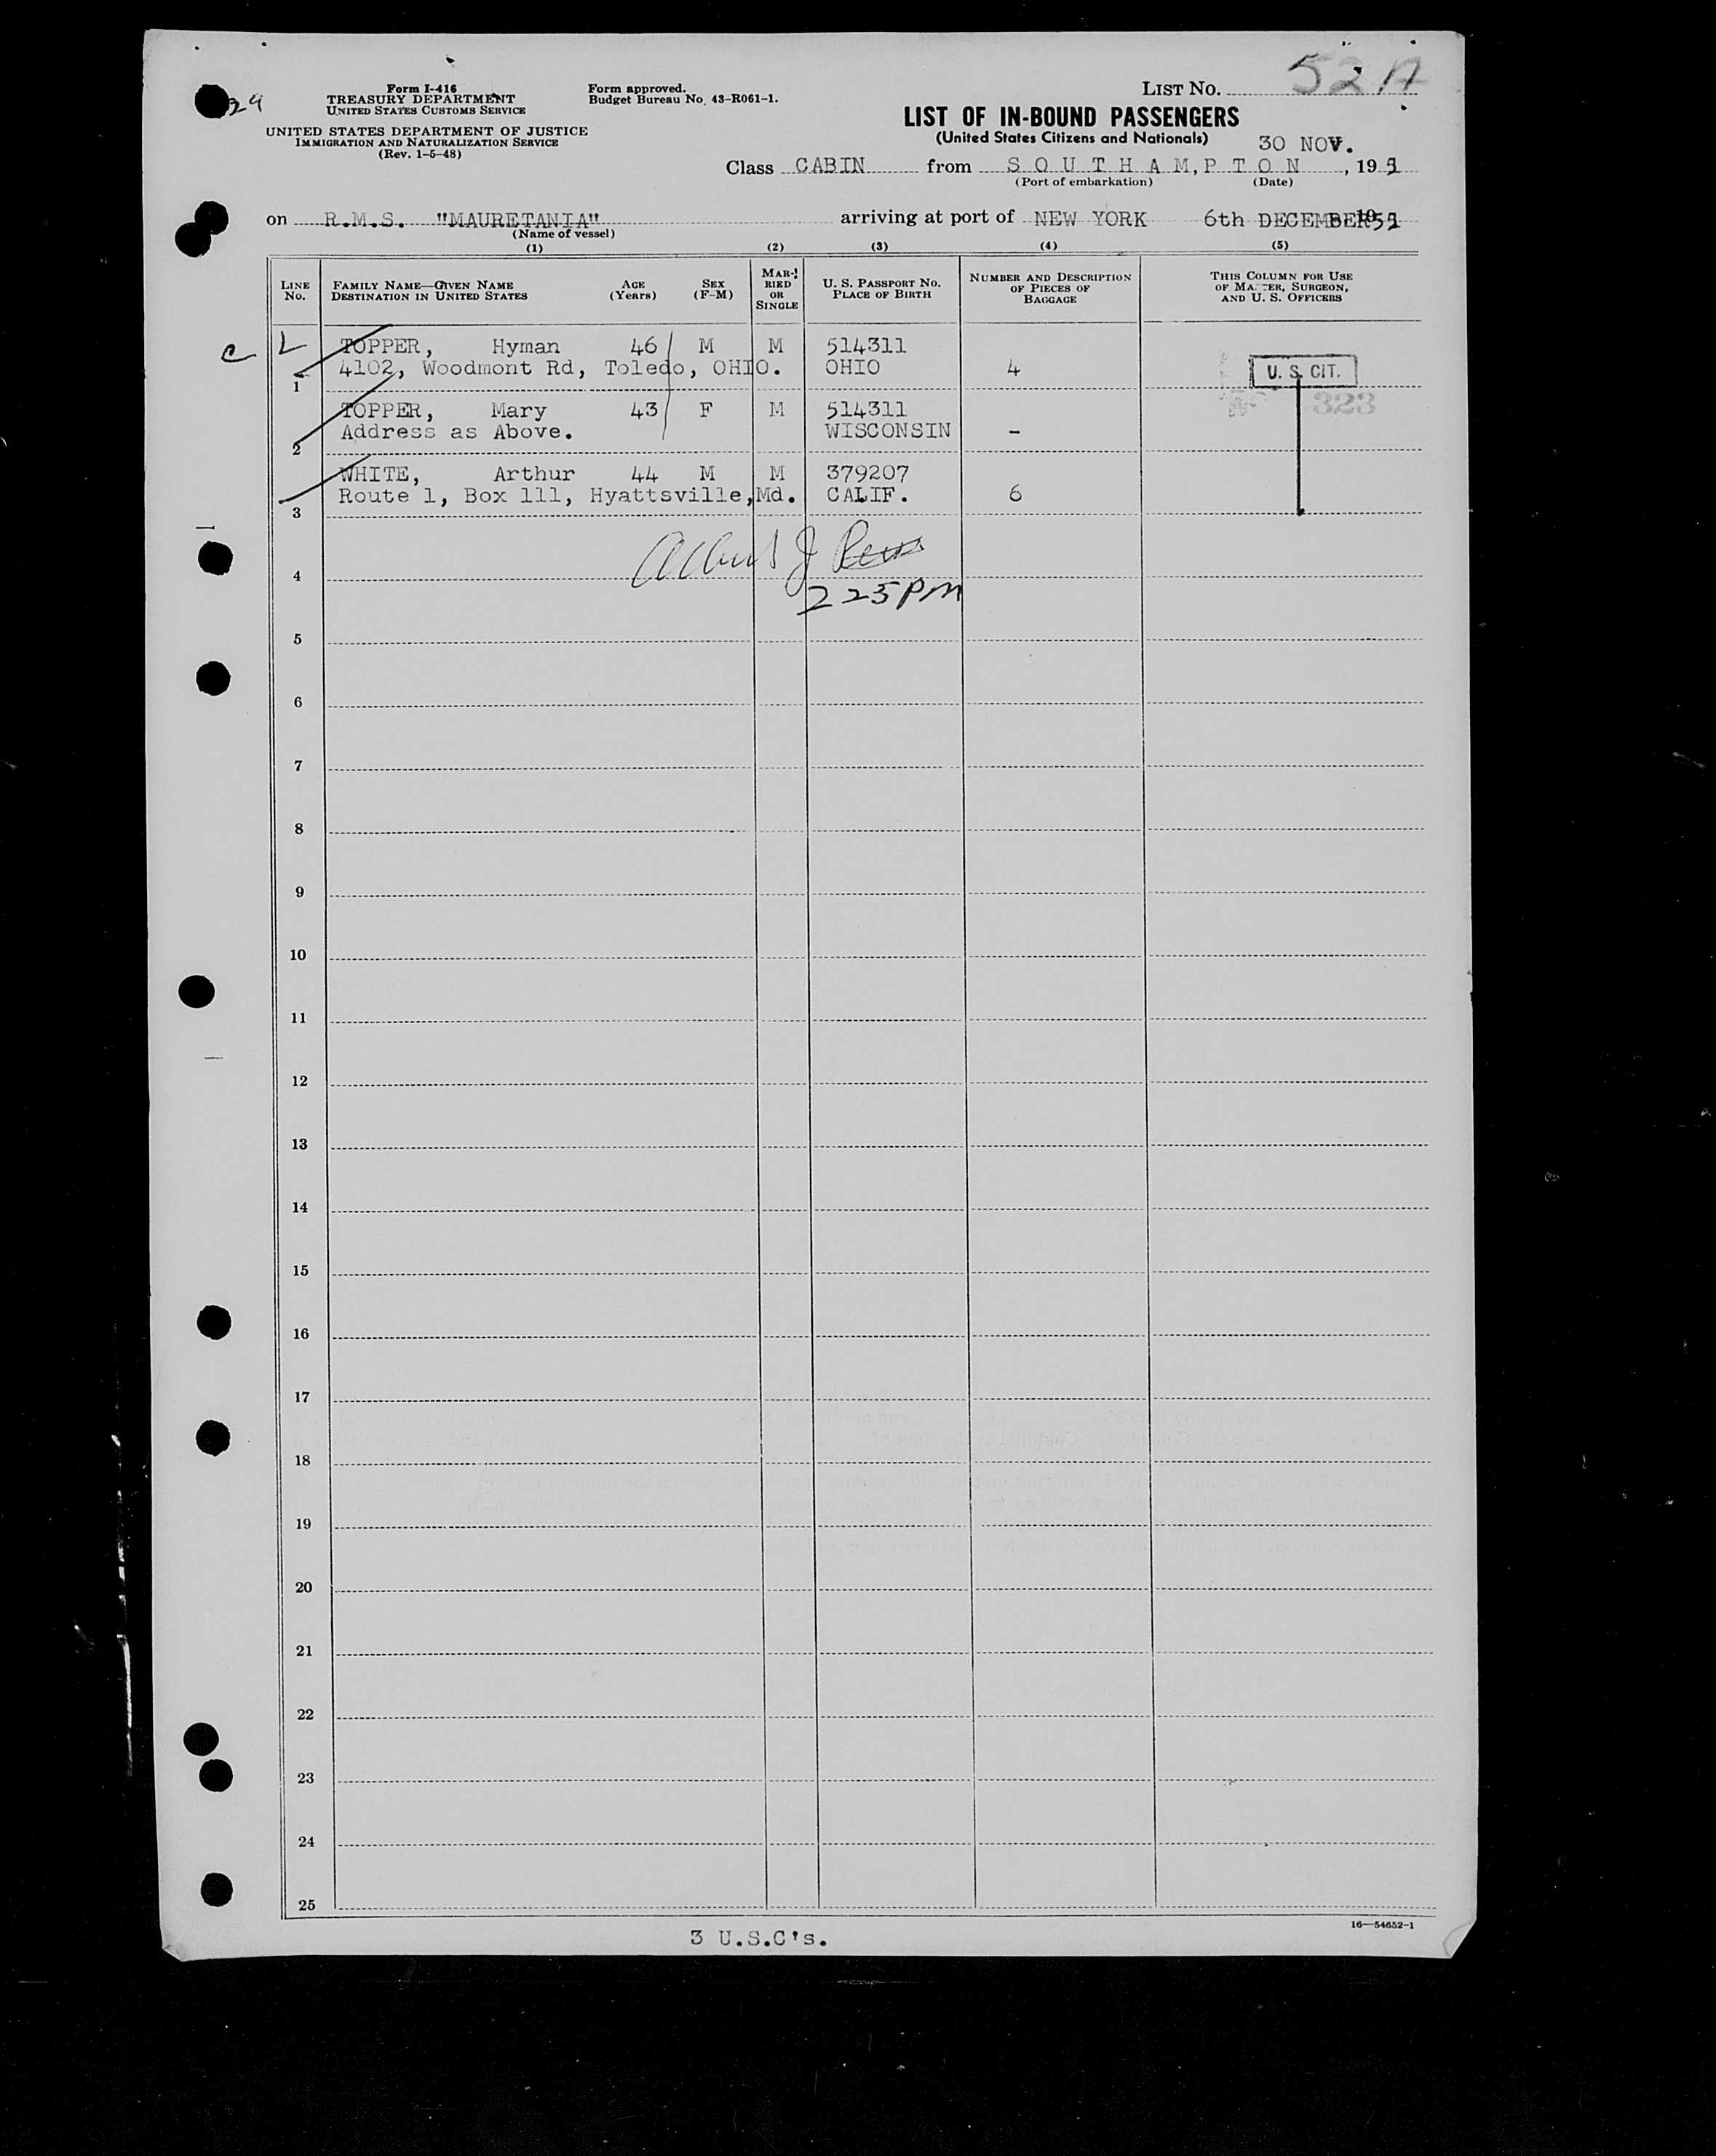 Form I-416
TREASURY DEPARTMENT
UNITED STATES CUSTOMS SERVICE
UNITED STATES DEPARTMENT OF JUSTICE
IMMIGRATION AND NATURALIZATION SERVICE
(Rev. 1-5-48)
Form approved.
Budget Bureau No. 43-R061-1.
LIST NO. 52 A
LIST OF IN-BOUND PASSENGERS
(United States Citizens and Nationals)
30 NOV.
Class CABIN from SOUTHAMPTON, 1951
(Port of embarkation) (Date)
on R.M.S. "MAURETANIA" arriving at port of NEW YORK 6th DECEMBER 1951
(Name of vessel)
(1) (2) (3) (4) (5)
LINE NO. FAMILY NAME—GIVEN NAME DESTINATION IN UNITED STATES AGE (Years) SEX (F-M) MARRIED OR SINGLE U. S. PASSPORT NO. PLACE OF BIRTH NUMBER AND DESCRIPTION OF PIECES OF BAGGAGE THIS COLUMN FOR USE OF MASTER, SURGEON, AND U. S. OFFICERS
TOPPER, Hyman 46 M M 514311
1 4102, Woodmont Rd, Toledo, OHIO. OHIO 4 U. S. CIT.
323
TOPPER, Mary 43 F M 514311
2 Address as Above. WISCONSIN -
WHITE, Arthur 44 M M 379207
3 Route 1, Box 111, Hyattsville, Md. CALIF. 6
Albert J
4
225 PM
5
6
7
8
9
10
11
12
13
14
15
16
17
18
19
20
21
22
23
24
25
16—54652-1
3 U.S.C's.